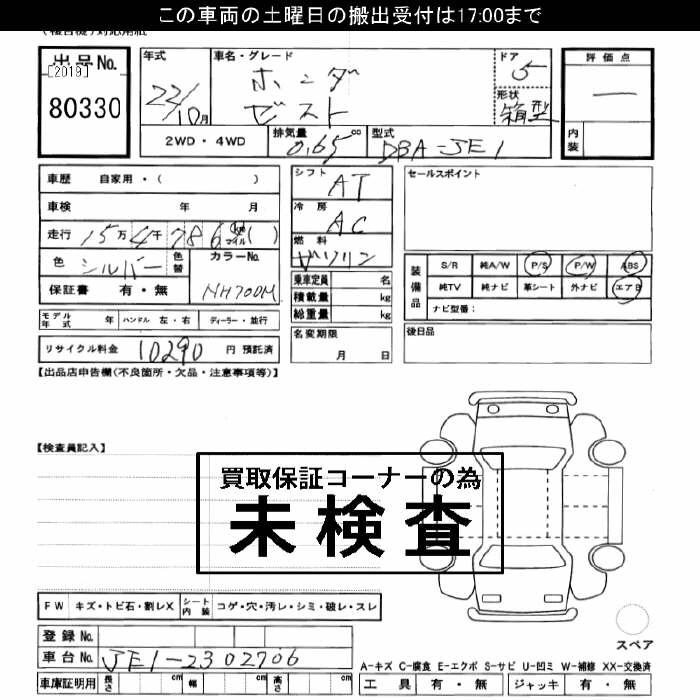 この車両の土曜日の搬出受付は17:00まで
出品No.
[2019]
80330
年式
22/10月
車名・グレード
ホンダ
ゼスト
ドア
5
形状
箱型
評価点
―
内装
2WD・4WD
排気量
0.65 cc
型式
DBA-JE1
車歴 自家用・( )
車検 年 月
走行 15万4千786 km マイル ( )
色 シルバー 色替
カラーNo.
NH700M
保証書 有・無
シフト
AT
冷房
AC
燃料
ガソリン
乗車定員 名
積載量 kg
総重量 kg
セールスポイント
装備品
S/R 純A/W P/S P/W ABS
純TV 純ナビ 革シート 外ナビ エアB
ナビ型番:
モデル年式 年 ハンドル 左・右 ディーラー・並行
名変期限
月 日
後日品
リサイクル料金 10290 円 預託済
【出品店申告欄(不良箇所・欠品・注意事項等)】
【検査員記入】
買取保証コーナーの為
未検査
FW キズ・トビ石・割レX シート内装 コゲ・穴・汚レ・シミ・破レ・スレ
登録No.
車台No. JE1-2302706
車庫証明用 長さ cm 幅 cm 高さ cm
スペア
A-キズ C-腐食 E-エクボ S-サビ U-凹ミ W-補修 XX-交換済
工具 有・無 ジャッキ 有・無